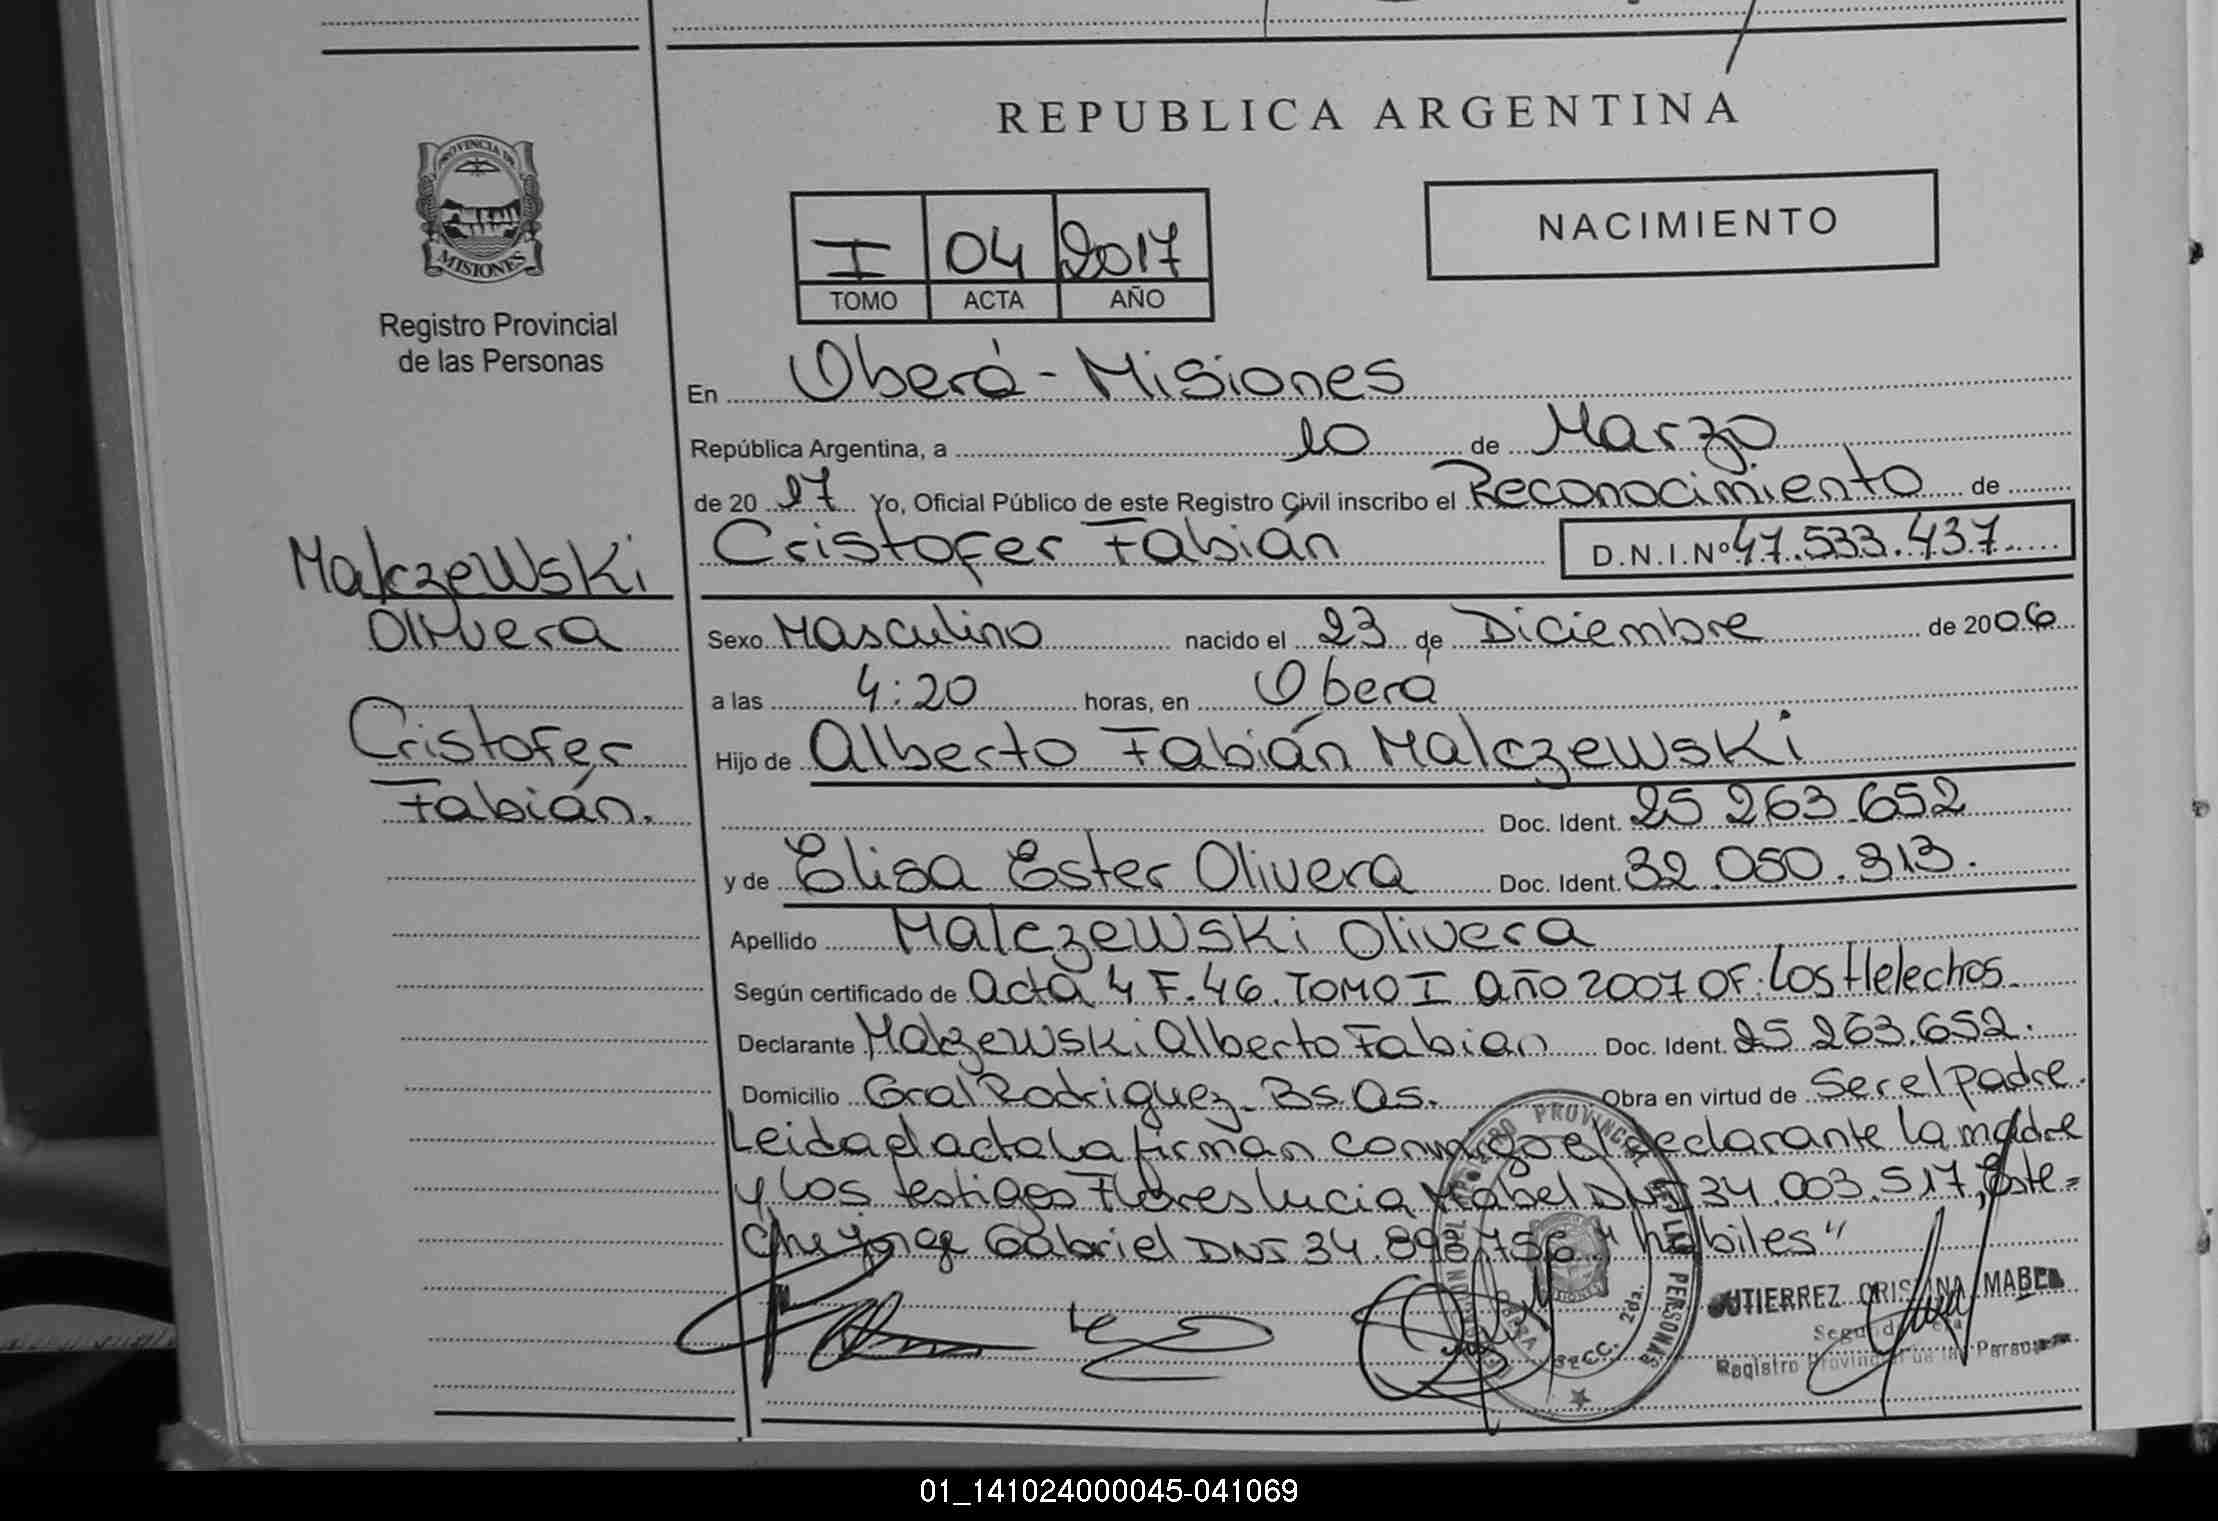 REPUBLICA ARGENTINA
PROVINCIA DE
MISIONES
Registro Provincial
de las Personas
NACIMIENTO
I 04 2017
TOMO ACTA AÑO
En Oberá - Misiones
República Argentina, a 10 de Marzo
de 20 17 Yo, Oficial Público de este Registro Civil inscribo el Reconocimiento de
Cristofer Fabián D.N.I.Nº 47.533.437
Malczewski
Olivera
Cristofer
Fabián.
Sexo Masculino nacido el 23 de Diciembre de 2006
a las 4:20 horas, en Oberá
Hijo de Alberto Fabián Malczewski
Doc. Ident. 25 263 652
y de Elisa Ester Olivera Doc. Ident. 32.050.313.
Apellido Malczewski Olivera
Según certificado de acta 4 F. 46. TOMO I año 2007 OF. Los Helechos
Declarante Malczewski Alberto Fabian Doc. Ident. 25 263.652.
Domicilio Gral Rodriguez - Bs. As. Obra en virtud de Ser el padre.
Leida el acta la firman conmigo el declarante la madre
y los testigos Flores Lucia Mabel DNI 34.003.517, Este=
Che Jorge Gabriel DNI 34.898.756 "habiles"
PROVINCIAL DE LAS PERSONAS
OBERA SECC. 2da.
GUTIERREZ CRISTINA MABEL
Registro Provincial de las Personas
01_141024000045-041069